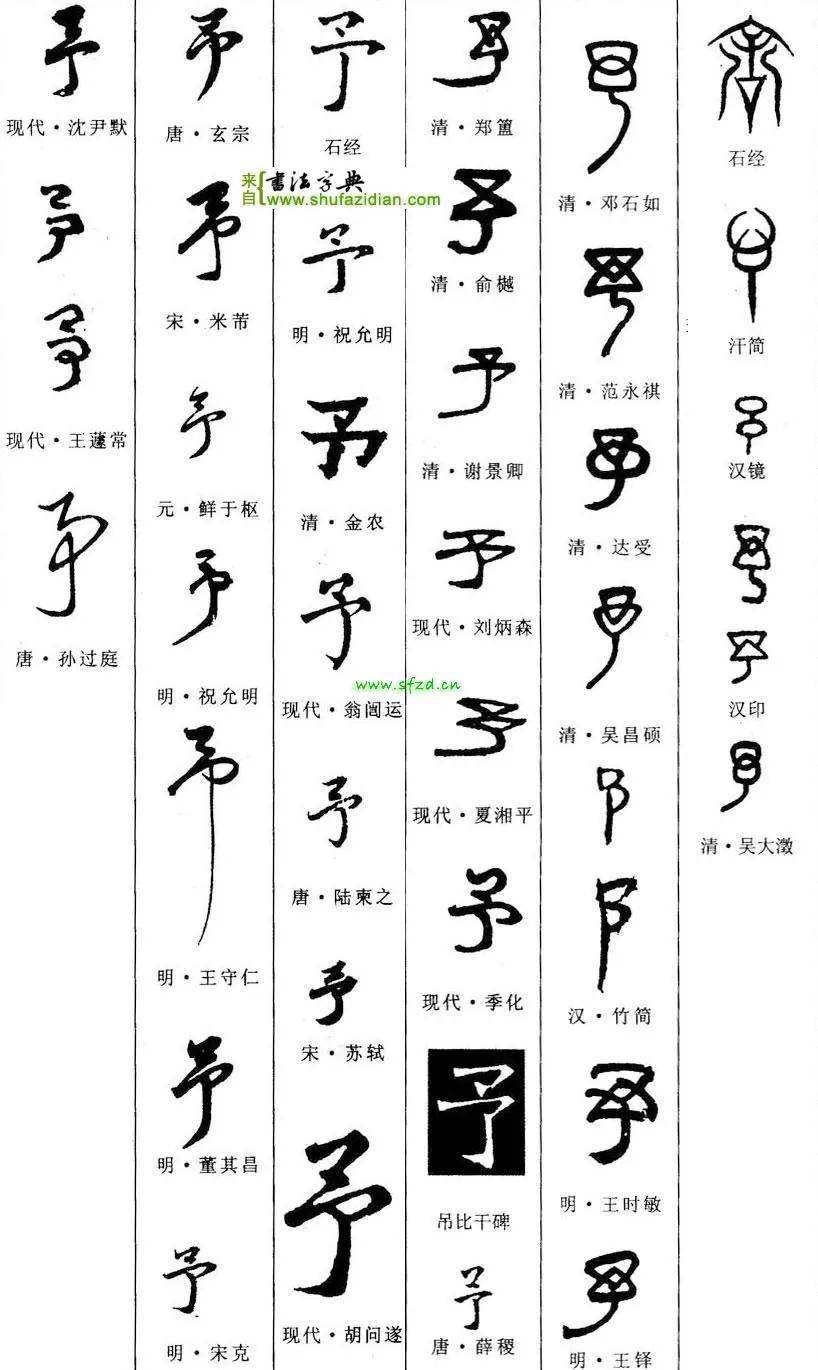 予
现代·沈尹默
予
予
现代·王蘧常
予
唐·孙过庭
予
唐·玄宗
予
宋·米芾
予
元·鲜于枢
予
明·祝允明
予
明·王守仁
予
明·董其昌
予
明·宋克
予
石经
来自{书法字典
www.shufazidian.com
予
明·祝允明
予
清·金农
予
现代·翁闿运
www.sfzd.cn
予
唐·陆柬之
予
宋·苏轼
予
现代·胡问遂
予
清·郑簠
予
清·俞樾
予
清·谢景卿
予
现代·刘炳森
予
现代·夏湘平
予
现代·季化
予
吊比干碑
予
唐·薛稷
予
清·邓石如
予
清·范永祺
予
清·达受
予
清·吴昌硕
予
予
汉·竹简
予
明·王时敏
予
明·王铎
石经
予
汗简
予
汉镜
予
予
汉印
予
清·吴大澂